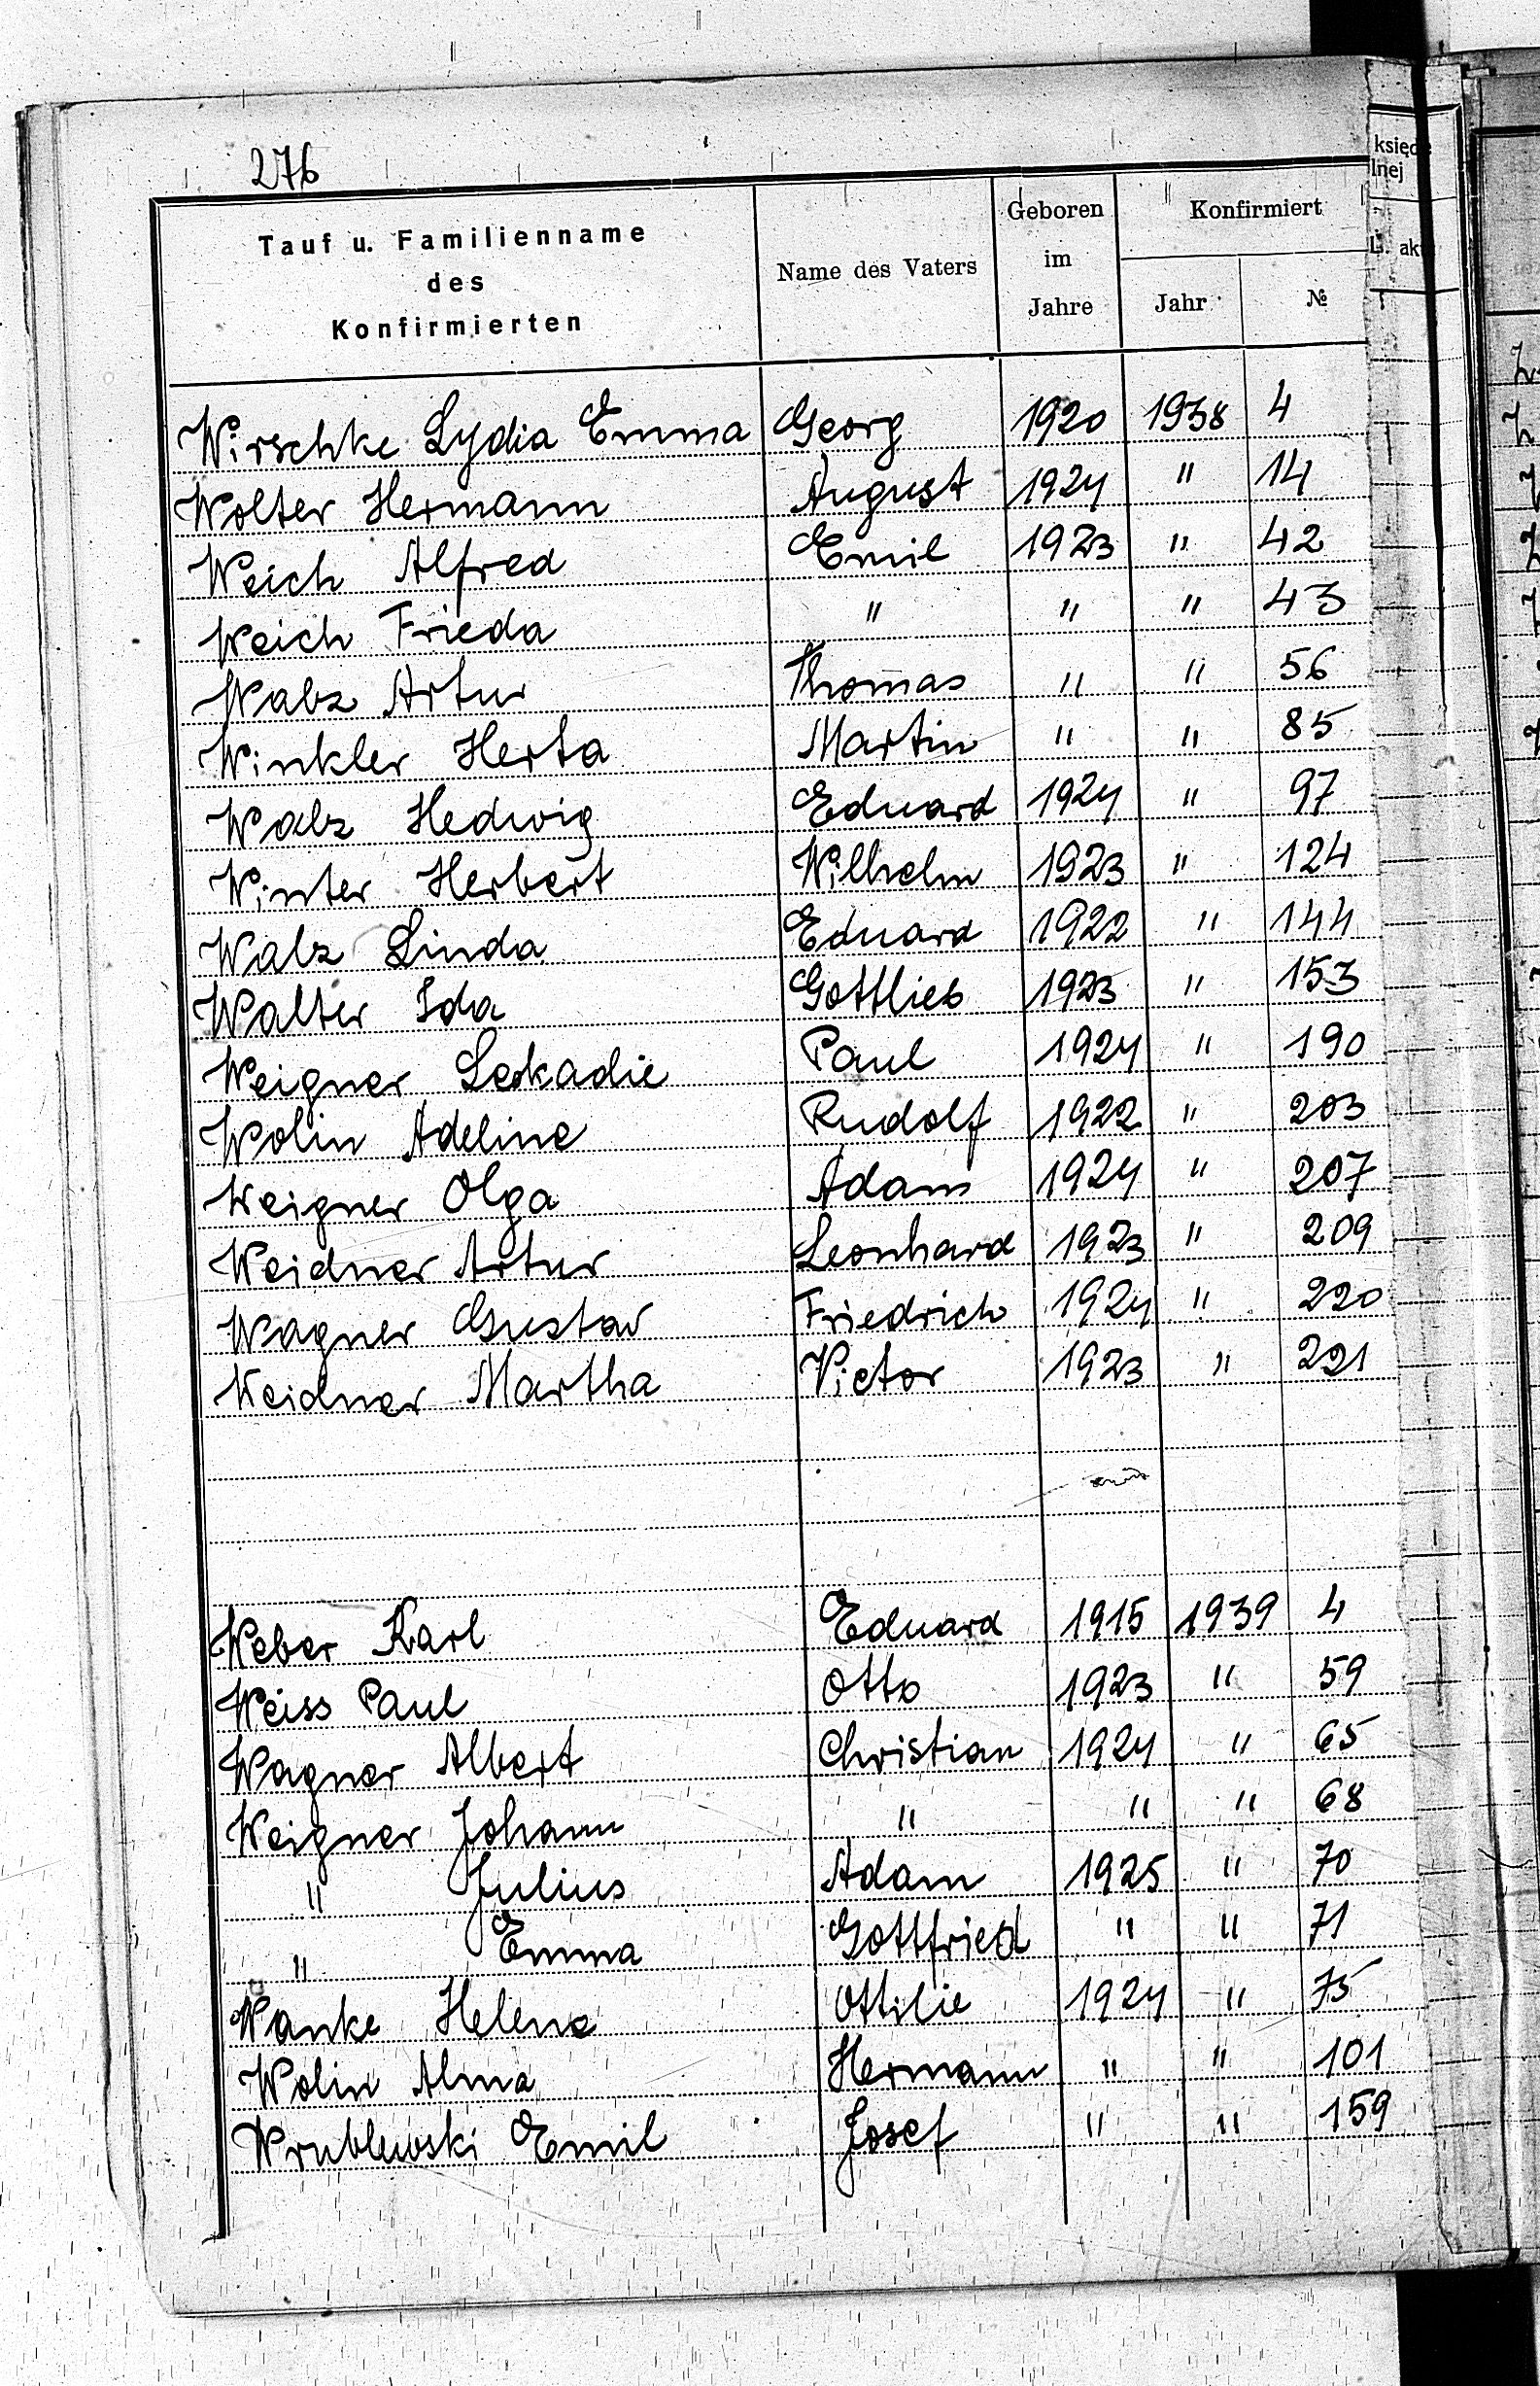 276
Tauf u. Familienname des Konfirmierten | Name des Vaters | Geboren im Jahre | Konfirmiert Jahr | №
Wirschke Lydia Emma Georg 1920 1938 4
Wolter Hermann August 1924 " 14
Weich Alfred Emil 1923 " 42
Weich Frieda " " " 43
Walz Artur Thomas " " 56
Winkler Herta Martin " " 85
Walz Hedwig Eduard 1924 " 97
Winter Herbert Wilhelm 1923 " 124
Walz Linda Eduard 1922 " 144
Walter Ida Gottlieb 1923 " 153
Weigner Leokadie Paul 1924 " 190
Wolin Adeline Rudolf 1922 " 203
Weigner Olga Adam 1924 " 207
Weidner Artur Leonhard 1923 " 209
Wagner Gustav Friedrich 1924 " 220
Weidner Martha Victor 1923 " 221
Weber Karl Eduard 1915 1939 4
Weiss Paul Otto 1923 " 59
Wagner Albert Christian 1924 " 65
Weigner Johann " " " 68
" Julius Adam 1925 " 70
" Emma Gottfried " " 71
Wanke Helene Ottilie 1924 " 75
Wolin Alma Hermann " " 101
Wrublewski Emil Josef " " 159